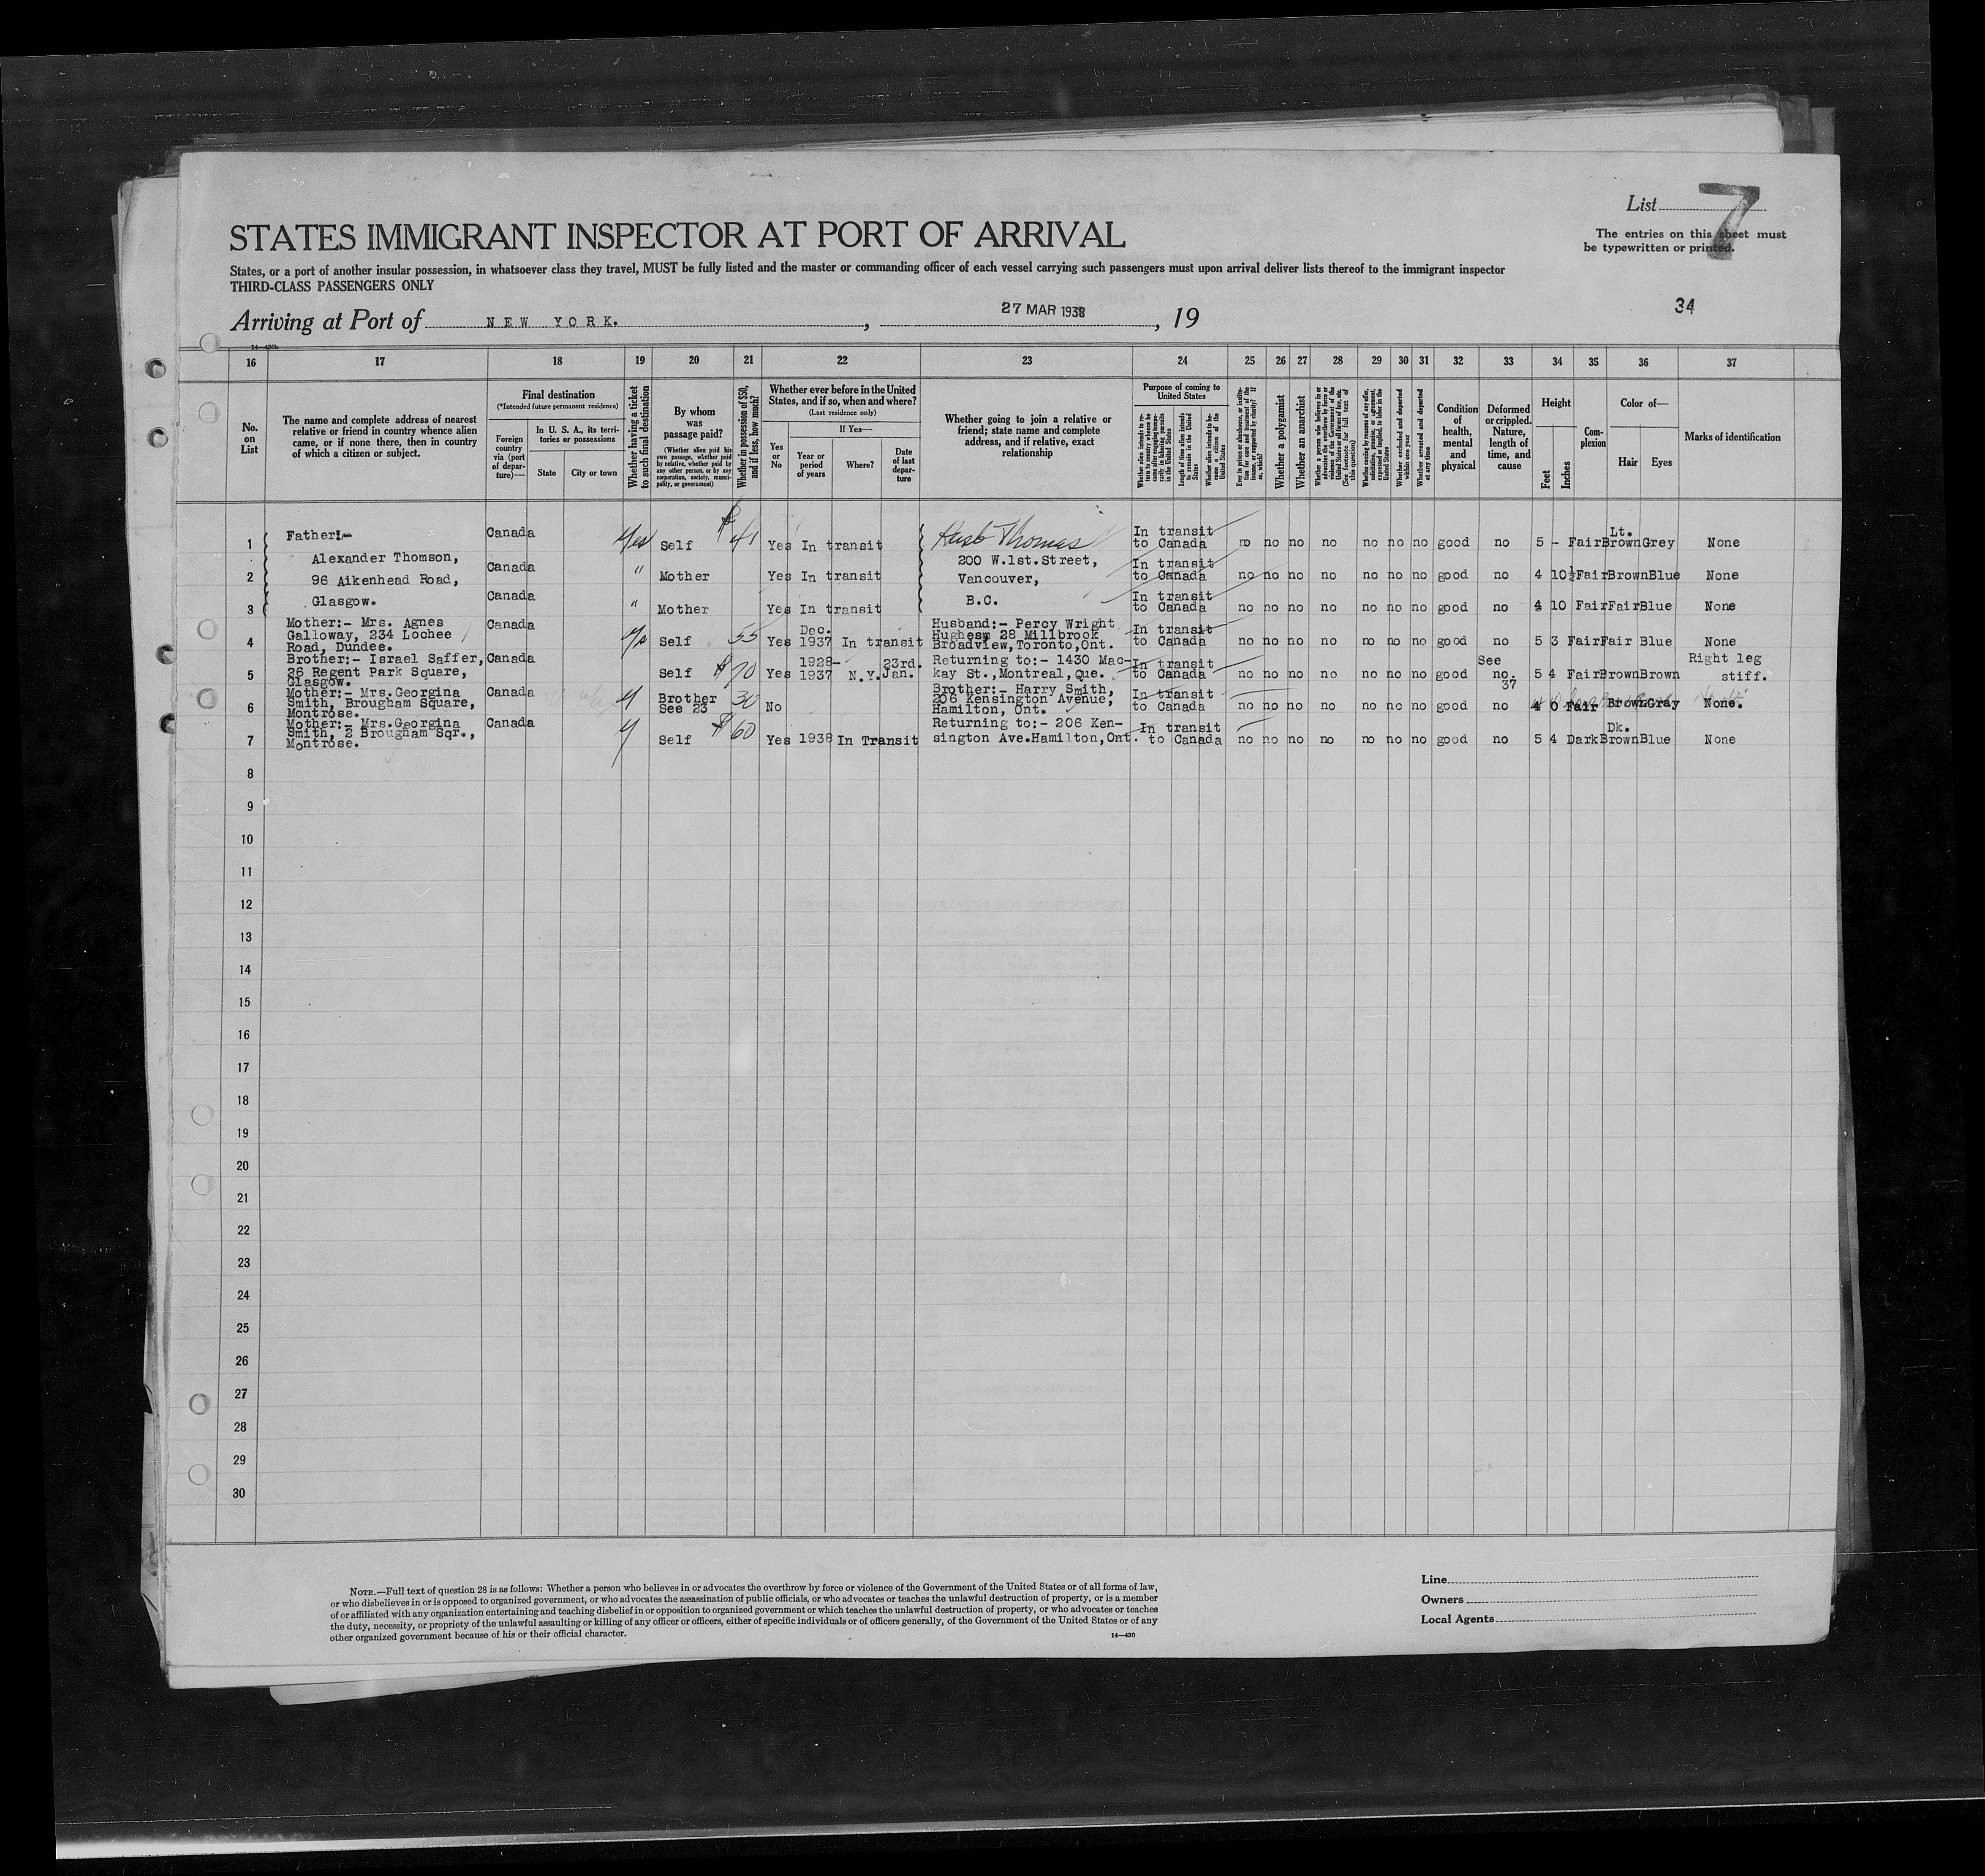 List 7
STATES IMMIGRANT INSPECTOR AT PORT OF ARRIVAL
The entries on this sheet must
be typewritten or printed.
States, or a port of another insular possession, in whatsoever class they travel, MUST be fully listed and the master or commanding officer of each vessel carrying such passengers must upon arrival deliver lists thereof to the immigrant inspector
THIRD-CLASS PASSENGERS ONLY
34
Arriving at Port of NEW YORK. , 27 MAR 1938 , 19
16 17 18 19 20 21 22 23 24 25 26 27 28 29 30 31 32 33 34 35 36 37
No. on List
The name and complete address of nearest relative or friend in country whence alien came, or if none there, then in country of which a citizen or subject.
Final destination
(*Intended future permanent residence)
Foreign country via (port of departure)—
In U. S. A., its territories or possessions
State
City or town
Whether having a ticket to such final destination
By whom was passage paid?
(Whether alien paid his own passage, whether paid by relative, whether paid by any other person, or by any corporation, society, municipality, or government)
Whether in possession of $50, and if less, how much?
Whether ever before in the United States, and if so, when and where?
(Last residence only)
Yes or No
If Yes—
Year or period of years
Where?
Date of last departure
Whether going to join a relative or friend; state name and complete address, and if relative, exact relationship
Purpose of coming to United States
Length of time alien intends to remain in the United States
Whether alien intends to become a citizen of the United States
Whether a polygamist
Whether an anarchist
Whether excluded and deported within one year
Whether arrested and deported at any time
Condition of health, mental and physical
Deformed or crippled. Nature, length of time, and cause
Height
Feet
Inches
Complexion
Color of—
Hair
Eyes
Marks of identification
1 Father:- Canada Yes Self $ 41 Yes In transit Husb Thomas In transit to Canada no no no no no no no good no 5 - Fair Lt. Brown Grey None
Alexander Thomson, 200 W.1st.Street,
2 96 Aikenhead Road, Canada " Mother Yes In transit Vancouver, In transit to Canada no no no no no no no good no 4 10½ Fair Brown Blue None
3 Glasgow. Canada " Mother Yes In transit B.C. In transit to Canada no no no no no no no good no 4 10 Fair Fair Blue None
Mother:- Mrs. Agnes Canada Dec. Husband:- Percy Wright
4 Galloway, 234 Lochee Self 55 Yes 1937 In transit Hughesm 28 Millbrook In transit to Canada no no no no no no no good no 5 3 Fair Fair Blue None
Road, Dundee. Broadview,Toronto,Ont.
Brother:- Israel Saffer, Canada 1928- 23rd. Returning to:- 1430 Mac- See Right leg
5 26 Regent Park Square, Self $ 70 Yes 1937 N.Y. Jan. kay St.,Montreal,Que. In transit to Canada no no no no no no no good no. 37 5 4 Fair Brown Brown stiff.
Glasgow.
Mother:- Mrs.Georgina Canada Brother Brother:- Harry Smith,
6 Smith, Brougham Square, See 23 30 No 206 Kensington Avenue, In transit to Canada no no no no no no no good no 4 0 Fair Brown Gray None.
Montrose. Hamilton, Ont.
Mother:- Mrs.Georgina Canada Returning to:- 206 Ken- Dk.
7 Smith, 2 Brougham Sqr., Self $ 60 Yes 1938 In Transit sington Ave.Hamilton,Ont. In transit to Canada no no no no no no no good no 5 4 Dark Brown Blue None
Montrose.
8
9
10
11
12
13
14
15
16
17
18
19
20
21
22
23
24
25
26
27
28
29
30
NOTE.—Full text of question 28 is as follows: Whether a person who believes in or advocates the overthrow by force or violence of the Government of the United States or of all forms of law,
or who disbelieves in or is opposed to organized government, or who advocates the assassination of public officials, or who advocates or teaches the unlawful destruction of property, or is a member
of or affiliated with any organization entertaining and teaching disbelief in or opposition to organized government or which teaches the unlawful destruction of property, or who advocates or teaches
the duty, necessity, or propriety of the unlawful assaulting or killing of any officer or officers, either of specific individuals or of officers generally, of the Government of the United States or of any
other organized government because of his or their official character.
14—430
Line
Owners
Local Agents